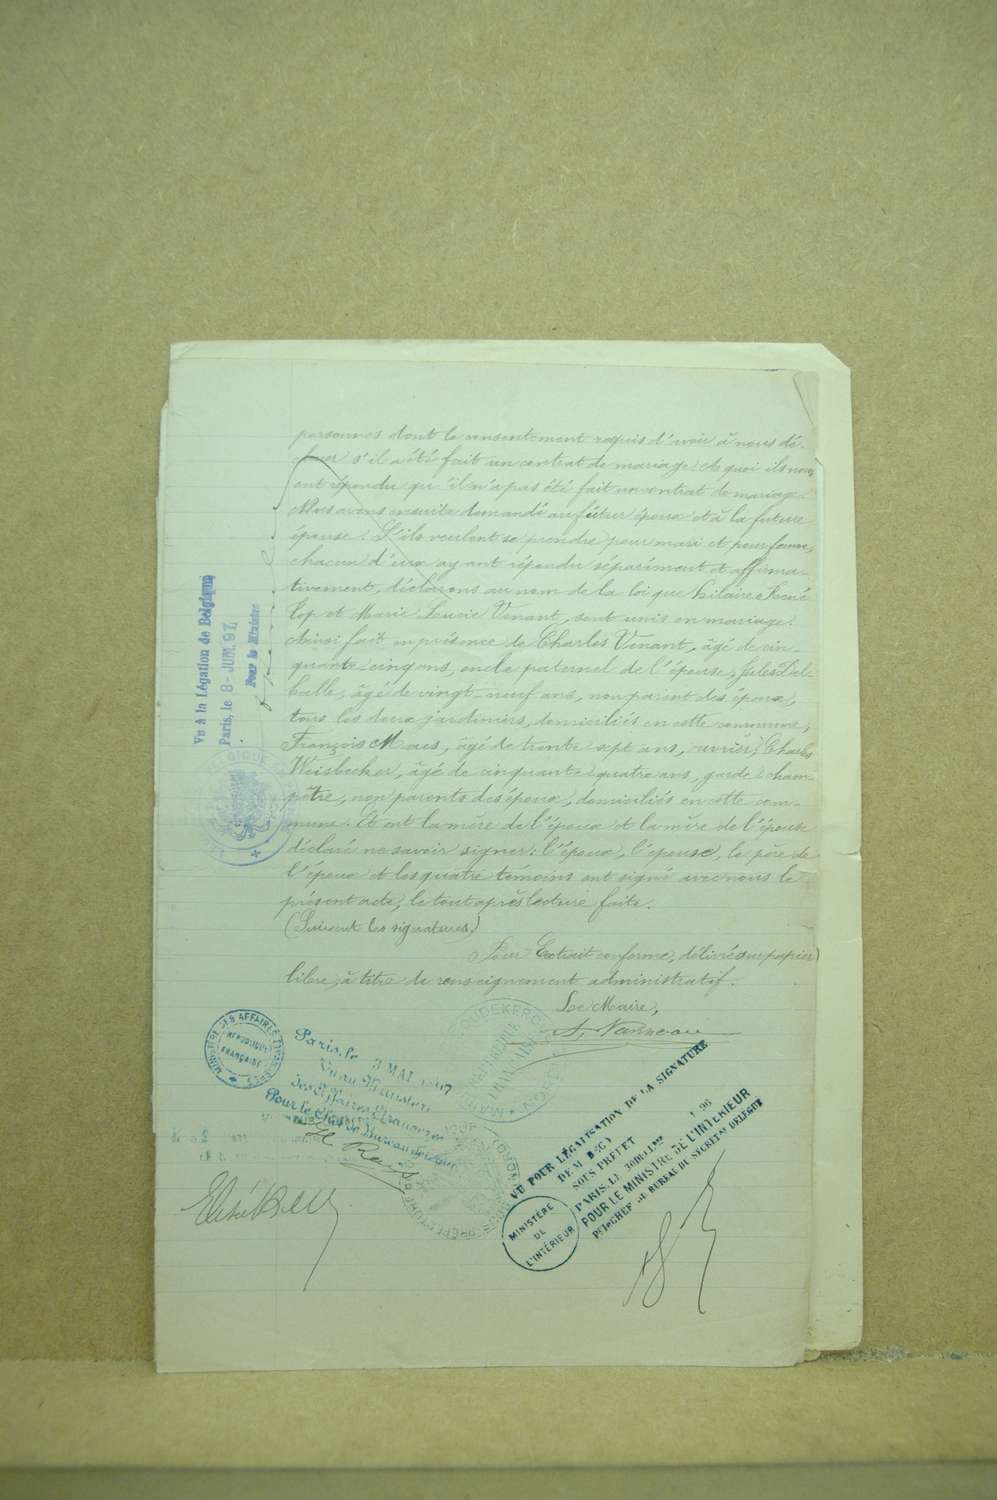 personnes dont le consentement requis d'avoir à nous dé-
clarer s'il a été fait un contrat de mariage. A quoi ils nous
ont répondu qu'il n'a pas été fait un contrat de mariage.
Nous avons ensuite demandé au futur époux et à la future
épouse: S'ils veulent se prendre pour mari et pour femme,
chacun d'eux ayant répondu séparément et affirma-
tivement, déclarons au nom de la loi que Hilaire René
Cop et Marie Lucie Venant, sont unis en mariage.
Ainsi fait en présence de Charles Venant, âgé de cin-
quante-cinq ans, oncle paternel de l'épouse, Jules Del-
balle, âgé de vingt-neuf ans, non parent des époux,
tous les deux jardiniers, domiciliés en cette commune,
François Maes, âgé de trente sept ans, ouvrier, Charles
Weisbecker, âgé de cinquante quatre ans, garde cham-
pêtre, non parents des époux, domiciliés en cette com-
mune. Et ont la mère de l'époux et la mère de l'épouse
déclaré ne savoir signer; l'époux, l'épouse, le père de
l'époux et les quatre temoins ont signé avec nous le
présent acte, le tout après lecture faite.
(Suivent les signatures.)
Pour Extrait conforme, délivré sur papier
libre à titre de renseignement administratif.
Le Maire,
Vu à la Légation de Belgique
Paris, le 8 - JUIN. 97
Pour le Ministre
MINISTÈRE DES AFFAIRES ÉTRANGÈRES
RÉPUBLIQUE
FRANÇAISE
Paris, le 3 MAI
Vu au Ministère
des Affaires Étrangères
Pour le Chef de Bureau délégué
VU POUR LÉGALISATION DE LA SIGNATURE
DE M
SOUS PRÉFET
PARIS, LE
POUR LE MINISTRE DE L'INTÉRIEUR
CHEF DE BUREAU DU SECRÉTAT DÉLÉGUÉ
MINISTÈRE
DE
L'INTÉRIEUR